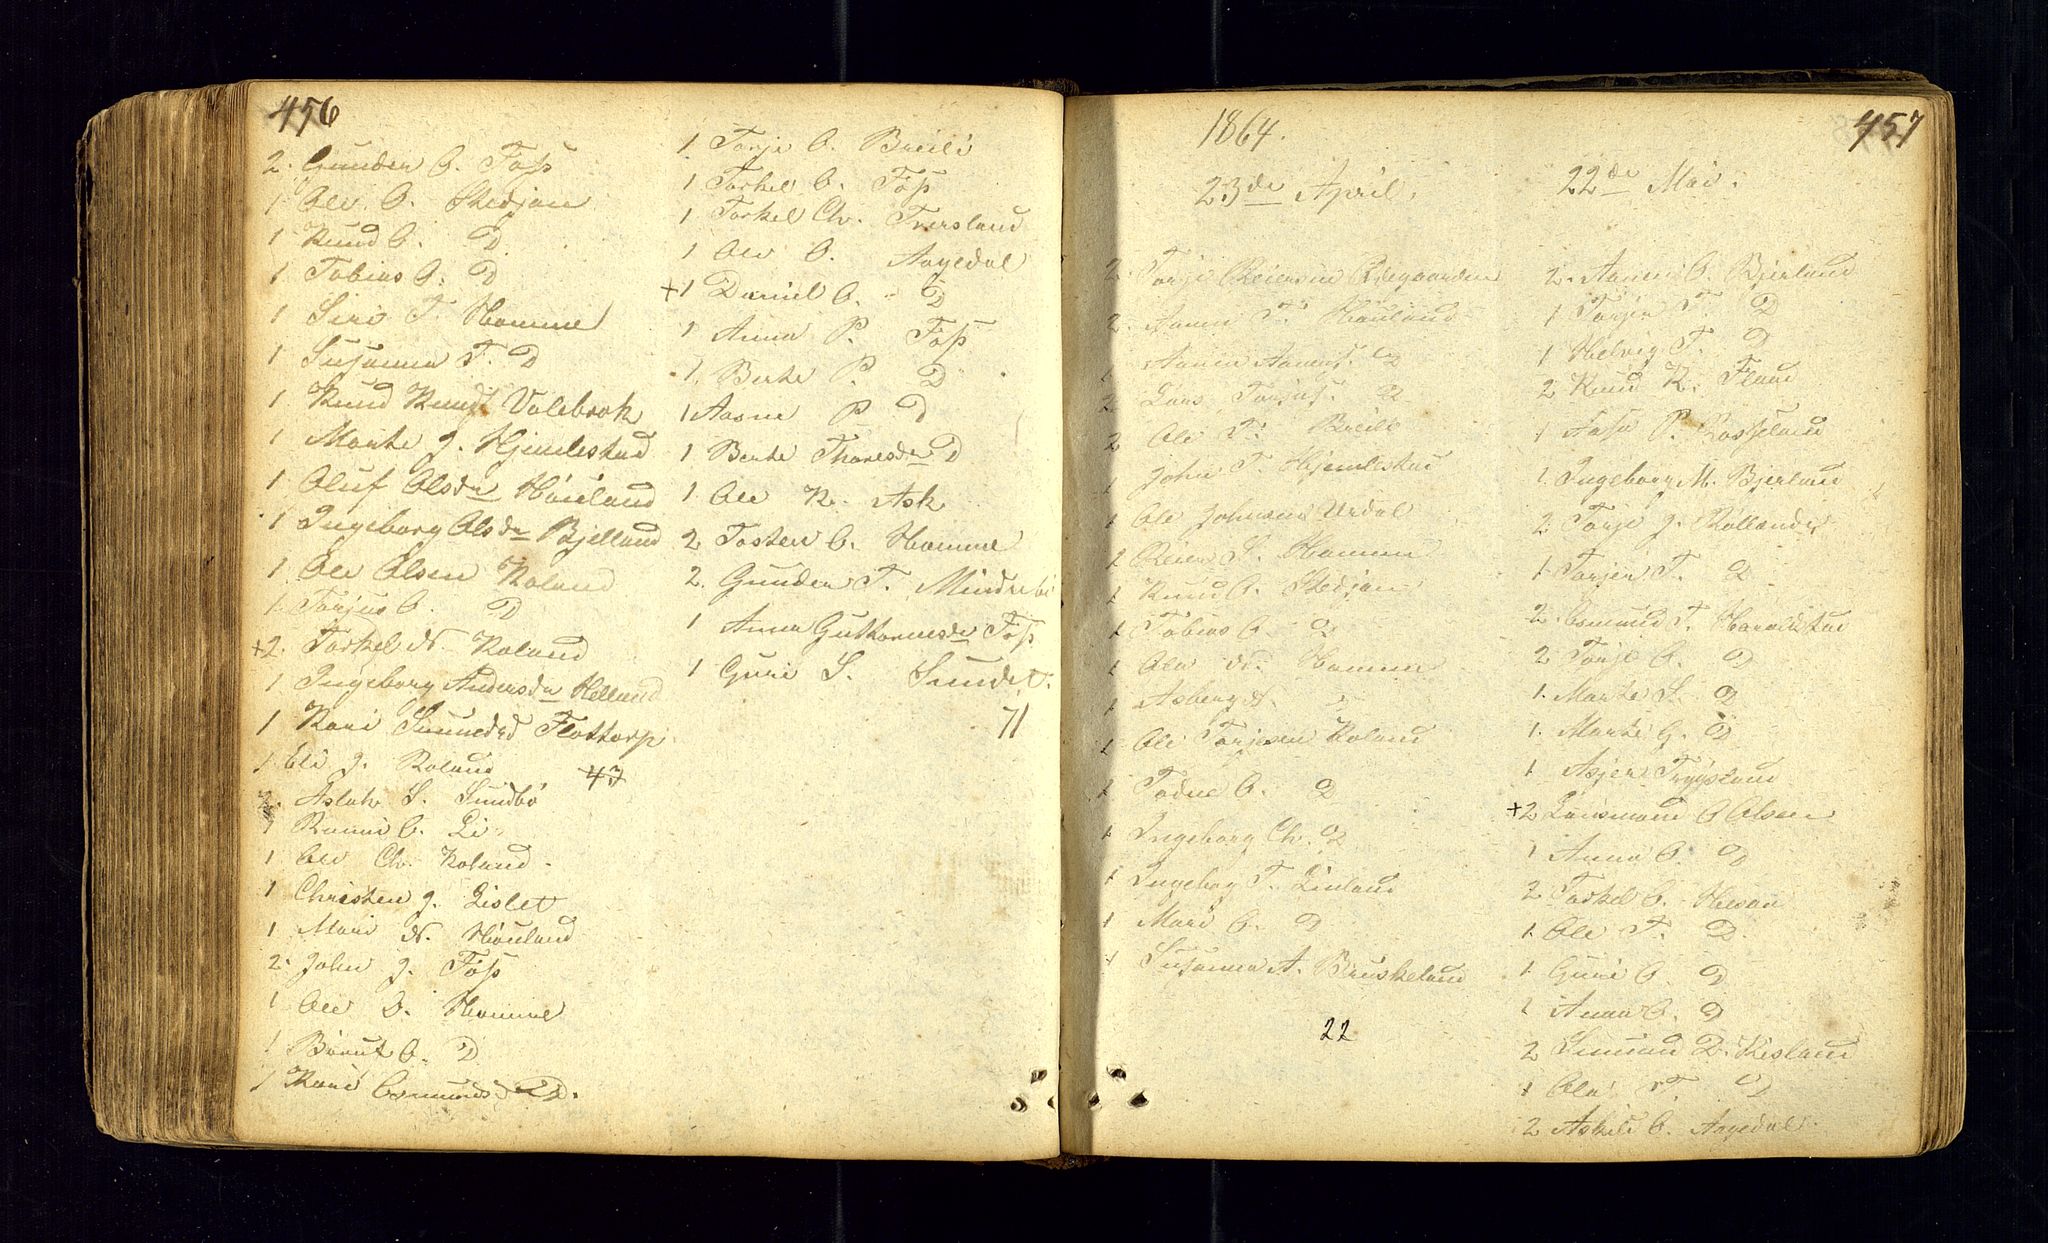 456
2. Gunder O. Foss
1 Ole O. Stedjan
1 Knud O. D
1 Tobias O. D
1 Siri T. Homme
1 Susanna T. D
1 Knud Knuds. Valebrok
1 Marte J. Hjemlestad
1 Oluf Olsdr Houland
1 Ingeborg Olsdr Bjelland
1 Ole Olsen Roland
1 Torjus O. D
+2. Torkel N. Roland
1 Ingeborg Andersdr Helland
1 Kari Simmedsd Flottorp
1 Eli J. Roland 47
2. Aslak S. Sundbø
1 Rannei O. Li
1 Ole Ch. Roland
1 Christen J. Lislet
1 Mari N. Houland
2. John J. Foss
1 Ole D. Homme
1 Bernt O. D
1 Kari Osmundsd D.
1 Torje O. Breili
1 Torkel O. Foss
1 Torkel Ch. Tversland
1 Ole O. Aagedal
+1 Daniel O. D
1 Anna P. Foss
1 Berte P. D
1 Aasne P. D
1 Berte Thoresdr D
1 Ole K. Ask
2 Tosten O. Homme
2. Gunder T. Mindrebø
1 Anna Guttormsdr Foss
1 Guri S. Sundet.
71
1864.
457
23de April.
2. Torje Reiersen Ødegaarden
2. Aanen T. Houland
1 Aanen Aanens. D
2 Lars Torjus. D
2 Ole T. Breili
1 John T. Hjemlestad
1 Ole Johnsen Urdal
1 Reier S. Homme
1 Knud O. Stedjan
1 Tobias O. D
1 Ole N. Homme
1 Asberg N. D
1 Ole Torjusen Roland
1 Todne O. D
1 Ingeborg Ch. D
1 Ingebog T. Linland
1 Mari O. D
1 Susanna A. Bruskeland
22
22de Mai.
2. Aanen O. Bjerland
1 Torjer T. D
1 Helvig T. D
2 Knud K. Fland
1 Aasa P. Rosseland
1. Ingeborg M. Bjerland
2. Torje J. Røllander
1 Torjer T. D
2. Osmund T. Haraldstad
2 Torje O. D
1. Marte S. D
1. Marte G. D
1 Asjer Trygsland
+2 Lensmand O Olsen
1 Anna O. D
2 Torkel O. Hesaa
1. Ole T. D.
1 Guri O. D
1 Anna O. D
2 Simund D. Kisland
1 Ola T. D
2 Askili O. Aagedal